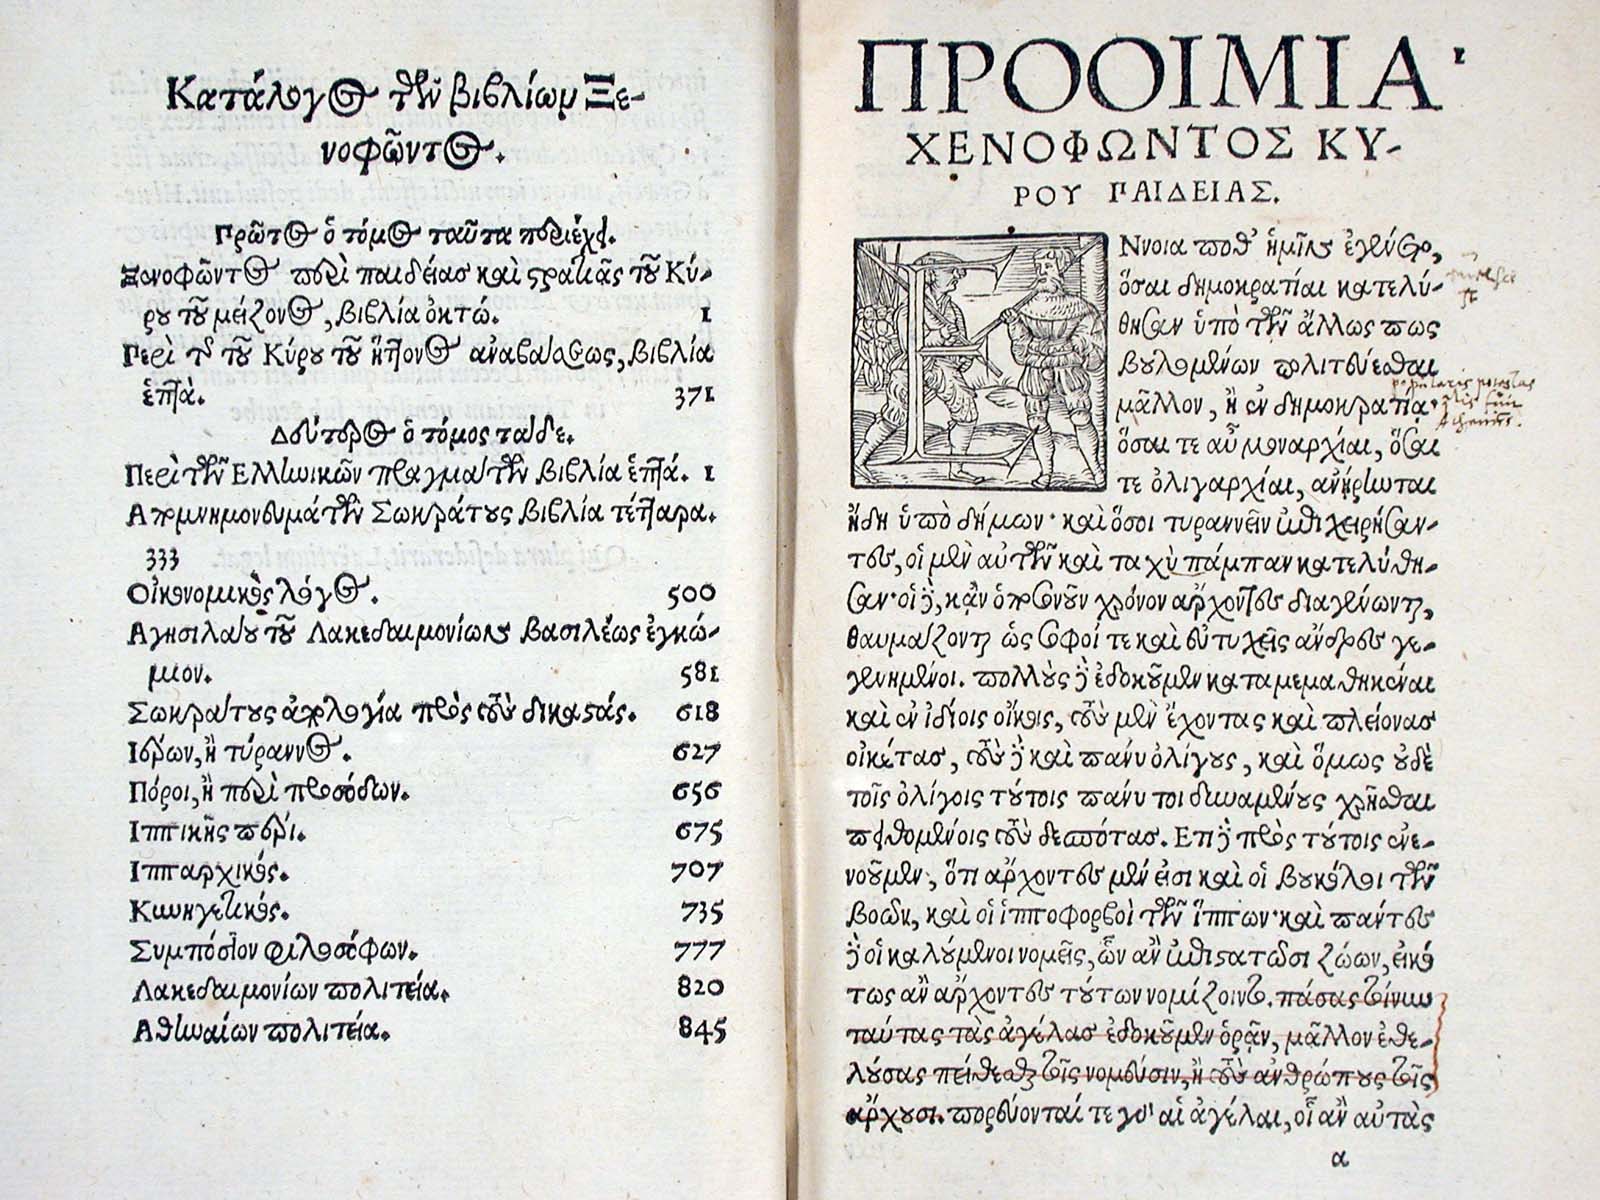 Κατάλογος τῶν βιβλίων Ξε-
νοφῶντος.
Πρῶτος ὁ τόμος ταῦτα περιέχει.
Ξενοφῶντος περὶ παιδείας καὶ στρατιᾶς τοῦ Κύ-
ρου τοῦ μείζονος, βιβλία ὀκτώ. 1
Περὶ τῆς τοῦ Κύρου τοῦ ἥττονος ἀναβάσεως, βιβλία
ἑπτά. 371
Δεύτερος ὁ τόμος τάδε.
Περὶ τῶν Ελληνικῶν πραγμάτων βιβλία ἑπτά. 1
Απομνημονευμάτων Σωκράτους βιβλία τέτταρα.
333
Οἰκονομικὸς λόγος. 500
Αγησιλάου τοῦ Λακεδαιμονίων βασιλέως ἐγκώ-
μιον. 581
Σωκράτους ἀπολογία πρὸς τοὺς δικαστάς. 618
Ιέρων, ἢ τύραννος. 627
Πόροι, ἢ περὶ προσόδων. 656
Ιππικῆς περί. 675
Ιππαρχικός. 707
Κυνηγετικός. 735
Συμπόσιον φιλοσόφων. 777
Λακεδαιμονίων πολιτεία. 820
Αθηναίων πολιτεία. 845
ΠΡΟΟΙΜΙΑ
ΧΕΝΟΦΩΝΤΟΣ ΚΥ-
ΡΟΥ ΠΑΙΔΕΙΑΣ.
ΕΝνοια ποθ' ἡμῖν ἐγένετο,
ὅσαι δημοκρατίαι κατελύ-
θησαν ὑπὸ τῶν ἄλλως πως
βουλομένων πολιτεύεσθαι
μᾶλλον, ἢ ἐν δημοκρατίᾳ·
popularis potestas
Athenis.
ὅσαι τε αὖ μοναρχίαι, ὅσαι
τε ὀλιγαρχίαι, ἀνῄρηνται
ἤδη ὑπὸ δήμων· καὶ ὅσοι τυραννεῖν ἐπιχειρήσαν-
τες, οἱ μὲν αὐτῶν καὶ ταχὺ πάμπαν κατελύθη-
σαν· οἱ δὲ, κἂν ὁποσονοῦν χρόνον ἄρχοντες διαγένωνται,
θαυμάζονται ὡς σοφοί τε καὶ εὐτυχεῖς ἄνδρες γε-
γενημένοι. πολλοὺς δὲ ἐδοκοῦμεν καταμεμαθηκέναι
καὶ ἐν ἰδίοις οἴκοις, τοὺς μὲν ἔχοντας καὶ πλείονας
οἰκέτας, τοὺς δὲ καὶ πάνυ ὀλίγους, καὶ ὅμως οὐδὲ
τοῖς ὀλίγοις τούτοις πάνυ τοι δυναμένους χρῆσθαι
πειθομένοις τοὺς δεσπότας. Επὶ δὲ πρὸς τούτοις ἐνε-
νοοῦμεν, ὅτι ἄρχοντες μέν εἰσι καὶ οἱ βουκόλοι τῶν
βοῶν, καὶ οἱ ἱπποφορβοὶ τῶν ἵππων· καὶ πάντες
δὲ οἱ καλούμενοι νομεῖς, ὧν ἂν ἐπιστατῶσι ζώων, εἰκό
τως ἂν ἄρχοντες τούτων νομίζοιντο. πάσας τοίνυν
ταύτας τὰς ἀγέλας ἐδοκοῦμεν ὁρᾶν, μᾶλλον ἐθε-
λούσας πείθεσθαι τοῖς νομεῦσιν, ἢ τοὺς ἀνθρώπους τοῖς
ἄρχουσι. πορεύονταί τε γὰρ αἱ ἀγέλαι, οἷ ἂν αὐτὰς
α